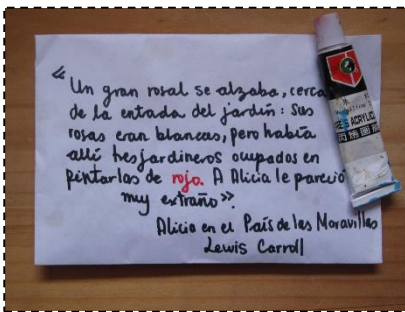 «Un gran rosal se alzaba, cerca
de la entrada del jardín: Sus
rosas eran blancas, pero había
allí tres jardineros ocupados en
pintarlas de rojo. A Alicia le pareció
muy extraño».
Alicia en el País de las Maravillas
Lewis Carroll
ACRYLIC